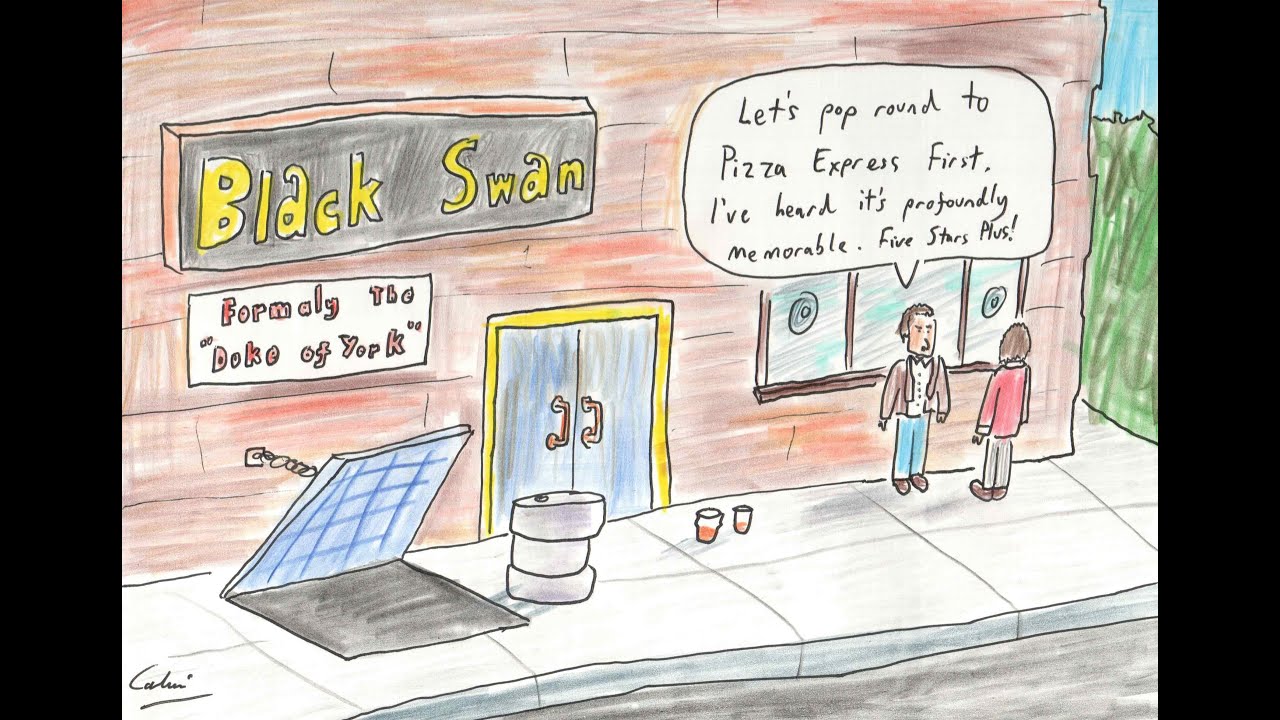 Black Swan
Formaly The
"Duke of York"
Let's pop round to
Pizza Express First.
I've heard it's profoundly
memorable. Five Stars Plus!